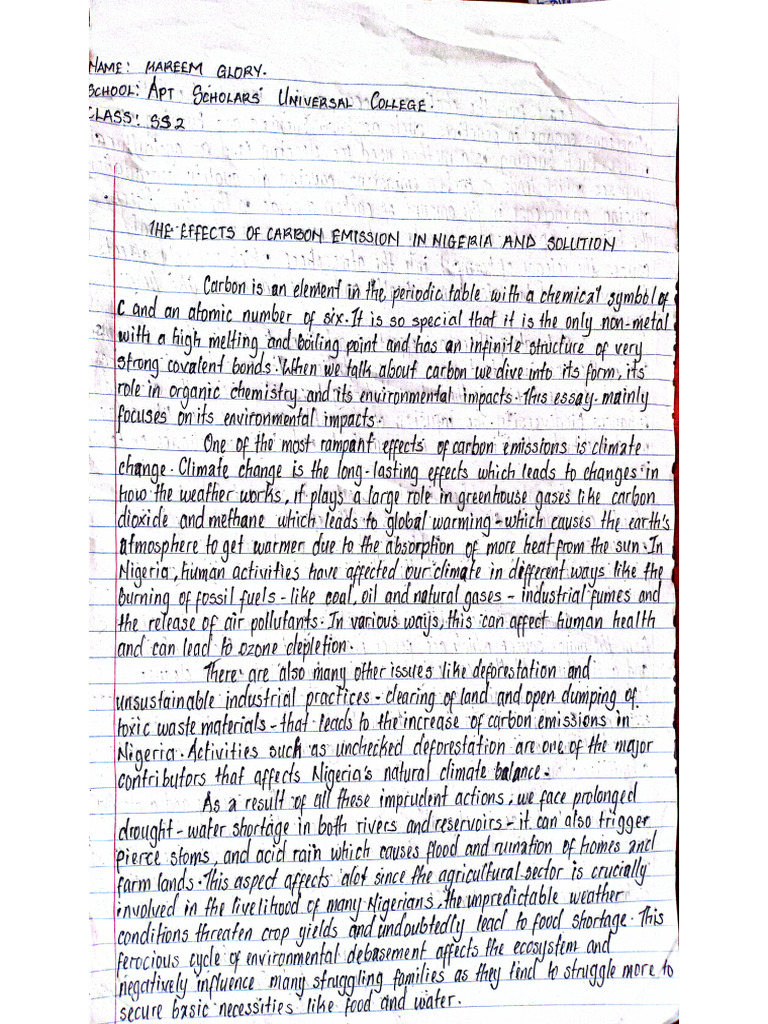 NAME: MAREEM GLORY.
SCHOOL: APT SCHOLARS' UNIVERSAL COLLEGE.
CLASS: SS2
THE EFFECTS OF CARBON EMISSION IN NIGERIA AND SOLUTION
Carbon is an element in the periodic table with a chemical symbol of
C and an atomic number of six. It is so special that it is the only non-metal
with a high melting and boiling point and has an infinite structure of very
strong covalent bonds. When we talk about carbon we dive into its form, its
role in organic chemistry and its environmental impacts. This essay mainly
focuses on its environmental impacts.
One of the most rampant effects of carbon emissions is climate
change. Climate change is the long-lasting effects which leads to changes in
how the weather works, it plays a large role in greenhouse gases like carbon
dioxide and methane which leads to global warming - which causes the earth's
atmosphere to get warmer due to the absorption of more heat from the sun. In
Nigeria, human activities have affected our climate in different ways like the
burning of fossil fuels - like coal, oil and natural gases - industrial fumes and
the release of air pollutants. In various ways, this can affect human health
and can lead to ozone depletion.
There are also many other issues like deforestation and
unsustainable industrial practices - clearing of land and open dumping of
toxic waste materials - that leads to the increase of carbon emissions in
Nigeria. Activities such as unchecked deforestation are one of the major
contributors that affects Nigeria's natural climate balance.
As a result of all these imprudent actions, we face prolonged
drought - water shortage in both rivers and reservoirs - it can also trigger
pierce stoms, and acid rain which causes flood and ruination of homes and
farm lands. This aspect affects alot since the agricultural sector is crucially
involved in the livelihood of many Nigerians, the unpredictable weather
conditions threaten crop yields and undoubtedly lead to food shortage. This
ferocious cycle of environmental debasement affects the ecosystem and
negatively influence many struggling families as they tend to struggle more to
secure basic necessities like food and water.